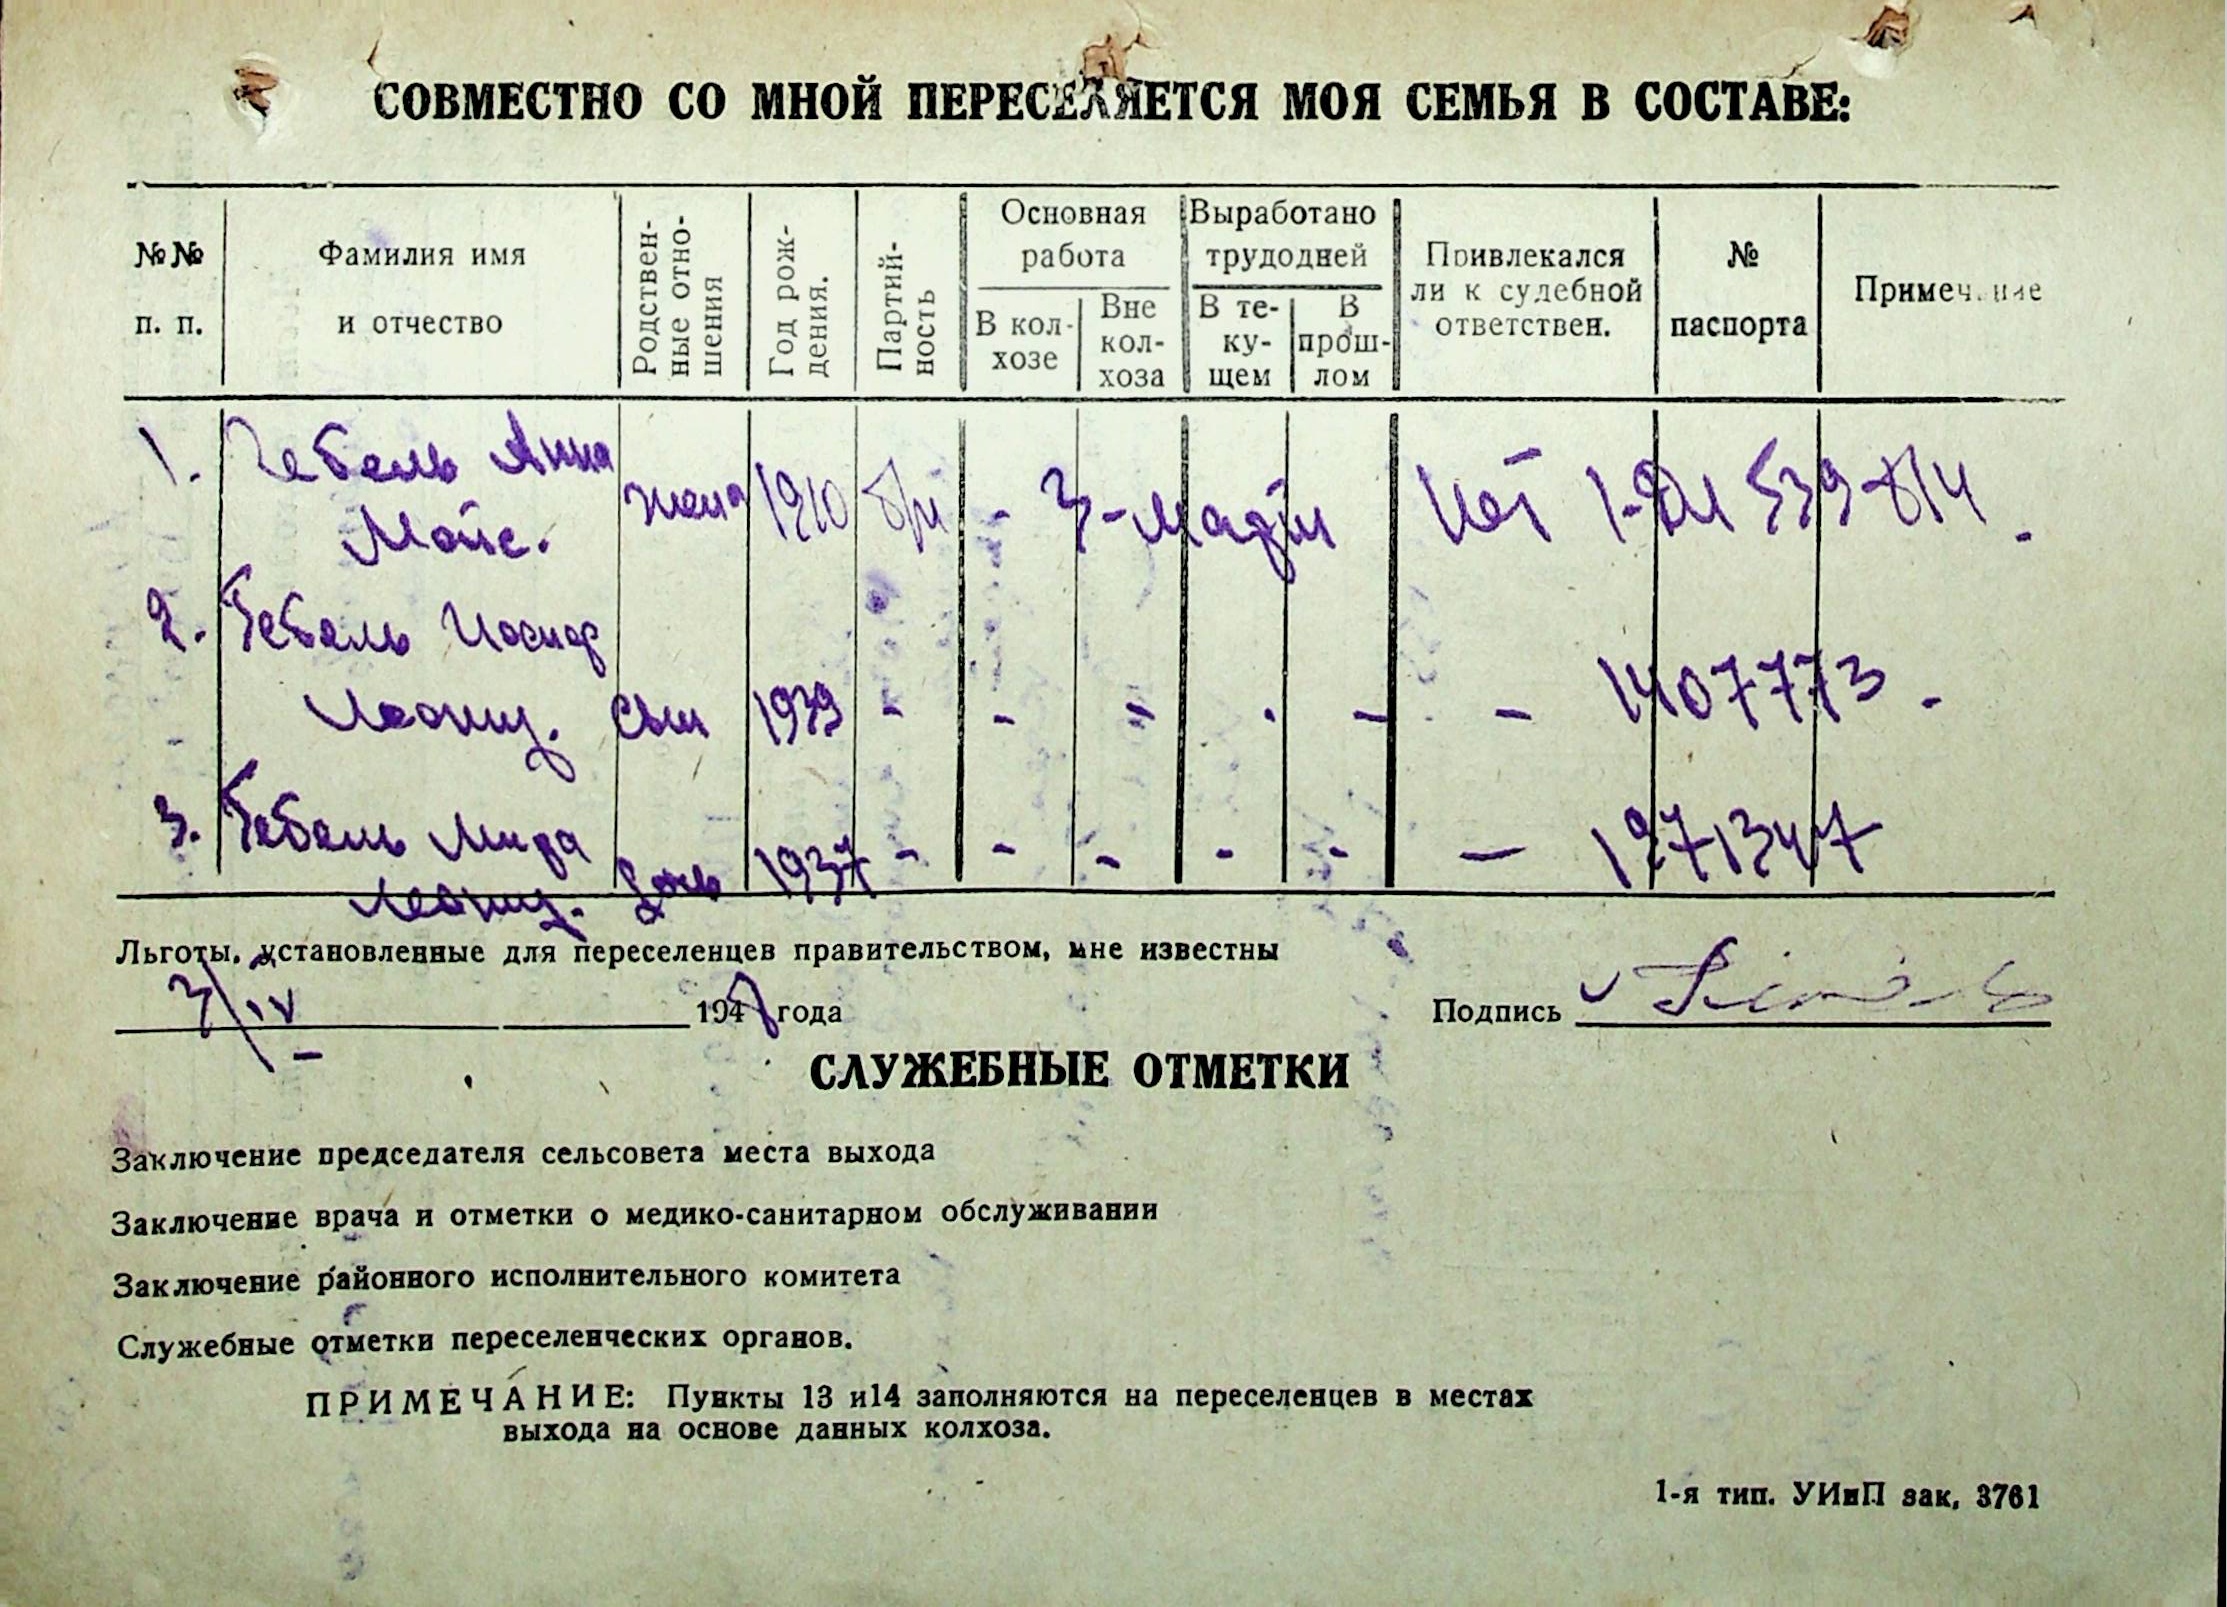 СОВМЕСТНО СО МНОЙ ПЕРЕСЕЛЯЕТСЯ МОЯ СЕМЬЯ В СОСТАВЕ:
№№ п. п.
Фамилия имя и отчество
Родствен-
ные отно-
шения
Год рож-
дения.
Партий-
ность
Основная работа
В кол-
хозе
Вне
кол-
хоза
Выработано трудодней
В те-
ку-
щем
В
прош-
лом
Привлекался
ли к судебной
ответствен.
№ паспорта
Примечание
1. Гебель Анна
Мойс. жена 1910 б/п - нет 539814
2. Гебель Иосиф
Леонид. сын 1939 - - - - - - 1407773 -
3. Гебель Мира
Леонид. дочь 1937 - - - - - - 1271347
Льготы, установленные для переселенцев правительством, мне известны
3/IV 194 года
Подпись
СЛУЖЕБНЫЕ ОТМЕТКИ
Заключение председателя сельсовета места выхода
Заключение врача и отметки о медико-санитарном обслуживании
Заключение районного исполнительного комитета
Служебные отметки переселенческих органов.
ПРИМЕЧАНИЕ: Пункты 13 и14 заполняются на переселенцев в местах
выхода на основе данных колхоза.
1-я тип. УИиП зак, 3761